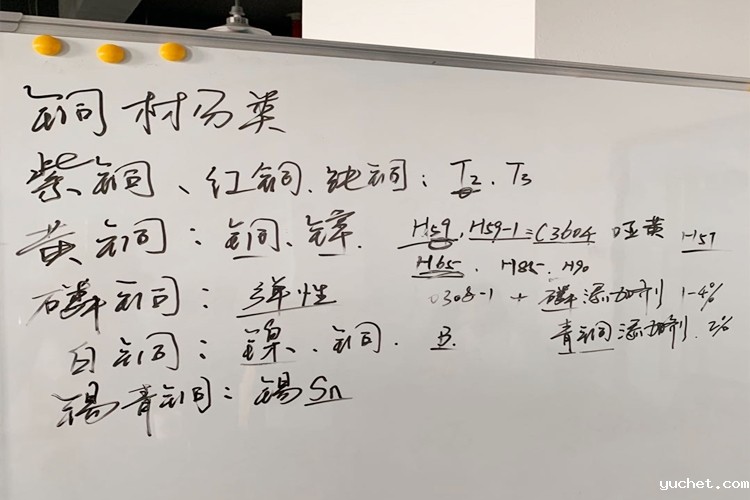 铜材分类
紫铜、红铜、纯铜：T2、T3
黄铜：铜、锌. H59, H59-1=C3604 哑黄 H57
H65. H85. H90
磷铜：弹性 0308-1 + 磷添加剂 1-4%
白铜：镍、铜. B. 青铜添加剂. 2%
锡青铜：锡Sn
yuchet.com